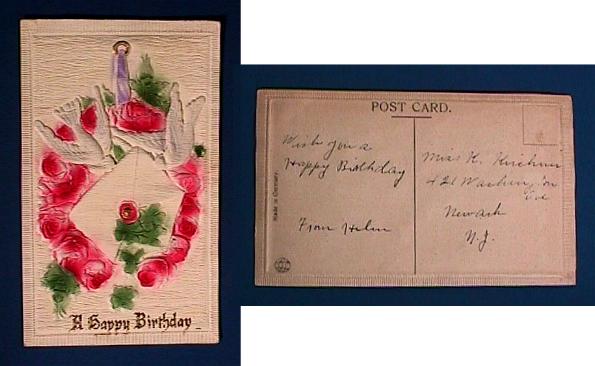 A Happy Birthday
POST CARD.
Wish you a
Happy Birthday
From Helen
Made in Germany.
Miss H.
421
Ave
Newark
N.J.